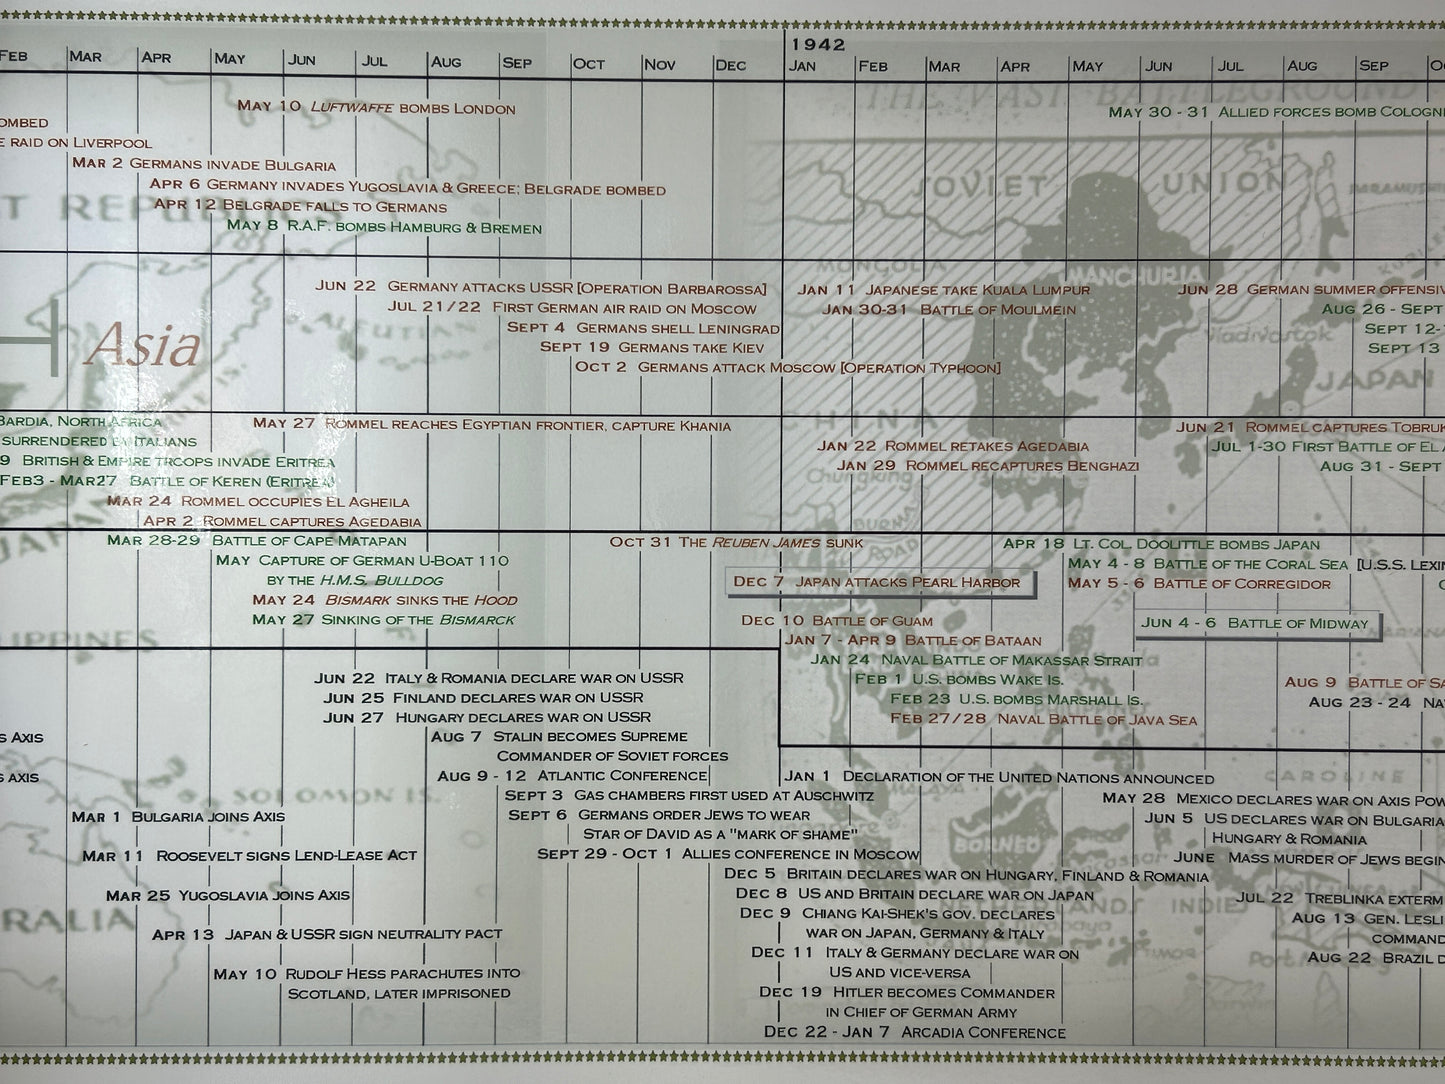 1942
FEB MAR APR MAY JUN JUL AUG SEP OCT NOV DEC JAN FEB MAR APR MAY JUN JUL AUG SEP
THE VAST BATTLEGROUND
MAY 10 LUFTWAFFE BOMBS LONDON
MAY 30 - 31 ALLIED FORCES BOMB COLOGN
OMBED
E RAID ON LIVERPOOL
MAR 2 GERMANS INVADE BULGARIA
APR 6 GERMANY INVADES YUGOSLAVIA & GREECE; BELGRADE BOMBED
SOVIET UNION
APR 12 BELGRADE FALLS TO GERMANS
T REPUBLICS
MAY 8 R.A.F. BOMBS HAMBURG & BREMEN
MONGOLIA
MANCHURIA
JUN 22 GERMANY ATTACKS USSR [OPERATION BARBAROSSA]
JAN 11 JAPANESE TAKE KUALA LUMPUR
JUN 28 GERMAN SUMMER OFFENSIV
JUL 21/22 FIRST GERMAN AIR RAID ON MOSCOW
JAN 30-31 BATTLE OF MOULMEIN
AUG 26 - SEPT
SEPT 4 GERMANS SHELL LENINGRAD
SEPT 12-
ALEUTIAN
Vladivostok
Asia
SEPT 19 GERMANS TAKE KIEV
SEPT 13
OCT 2 GERMANS ATTACK MOSCOW [OPERATION TYPHOON]
IS.
JAPAN
CHINA
BARDIA, NORTH AFRICA
MAY 27 ROMMEL REACHES EGYPTIAN FRONTIER, CAPTURE KHANIA
JUN 21 ROMMEL CAPTURES TOBRUK
SURRENDERED BY ITALIANS
JAN 22 ROMMEL RETAKES AGEDABIA
JUL 1-30 FIRST BATTLE OF EL A
9 BRITISH & EMPIRE TROOPS INVADE ERITREA
JAN 29 ROMMEL RECAPTURES BENGHAZI
AUG 31 - SEPT
FEB3 - MAR27 BATTLE OF KEREN (ERITREA)
Chungking
MAR 24 ROMMEL OCCUPIES EL AGHEILA
APR 2 ROMMEL CAPTURES AGEDABIA
BURMA
ROAD
MAR 28-29 BATTLE OF CAPE MATAPAN
OCT 31 THE REUBEN JAMES SUNK
APR 18 LT. COL. DOOLITTLE BOMBS JAPAN
MAY CAPTURE OF GERMAN U-BOAT 110
MAY 4 - 8 BATTLE OF THE CORAL SEA [U.S.S. LEXIN
BY THE H.M.S. BULLDOG
DEC 7 JAPAN ATTACKS PEARL HARBOR
MAY 5 - 6 BATTLE OF CORREGIDOR
MAY 24 BISMARK SINKS THE HOOD
MAY 27 SINKING OF THE BISMARCK
DEC 10 BATTLE OF GUAM
JUN 4 - 6 BATTLE OF MIDWAY
JAN 7 - APR 9 BATTLE OF BATAAN
IPPINES
JAN 24 NAVAL BATTLE OF MAKASSAR STRAIT
JUN 22 ITALY & ROMANIA DECLARE WAR ON USSR
FEB 1 U.S. BOMBS WAKE IS.
AUG 9 BATTLE OF SA
JUN 25 FINLAND DECLARES WAR ON USSR
FEB 23 U.S. BOMBS MARSHALL IS.
AUG 23 - 24 NA
PHILIPPINES
JUN 27 HUNGARY DECLARES WAR ON USSR
FEB 27/28 NAVAL BATTLE OF JAVA SEA
S AXIS
AUG 7 STALIN BECOMES SUPREME
COMMANDER OF SOVIET FORCES
S AXIS
AUG 9 - 12 ATLANTIC CONFERENCE
JAN 1 DECLARATION OF THE UNITED NATIONS ANNOUNCED
CAROLINE
MALAYA
SOLOMON IS.
SEPT 3 GAS CHAMBERS FIRST USED AT AUSCHWITZ
MAY 28 MEXICO DECLARES WAR ON AXIS POW
MAR 1 BULGARIA JOINS AXIS
SEPT 6 GERMANS ORDER JEWS TO WEAR
JUN 5 US DECLARES WAR ON BULGARIA
STAR OF DAVID AS A "MARK OF SHAME"
HUNGARY & ROMANIA
BORNEO
MAR 11 ROOSEVELT SIGNS LEND-LEASE ACT
SEPT 29 - OCT 1 ALLIES CONFERENCE IN MOSCOW
JUNE MASS MURDER OF JEWS BEGIN
DEC 5 BRITAIN DECLARES WAR ON HUNGARY, FINLAND & ROMANIA
MAR 25 YUGOSLAVIA JOINS AXIS
DEC 8 US AND BRITAIN DECLARE WAR ON JAPAN
JUL 22 TREBLINKA EXTERM
NETHERLANDS INDIES
RALIA
DEC 9 CHIANG KAI-SHEK'S GOV. DECLARES
AUG 13 GEN. LESLI
APR 13 JAPAN & USSR SIGN NEUTRALITY PACT
WAR ON JAPAN, GERMANY & ITALY
COMMAND
DEC 11 ITALY & GERMANY DECLARE WAR ON
TIMOR
AUG 22 BRAZIL D
MAY 10 RUDOLF HESS PARACHUTES INTO
US AND VICE-VERSA
SCOTLAND, LATER IMPRISONED
DEC 19 HITLER BECOMES COMMANDER
IN CHIEF OF GERMAN ARMY
DEC 22 - JAN 7 ARCADIA CONFERENCE